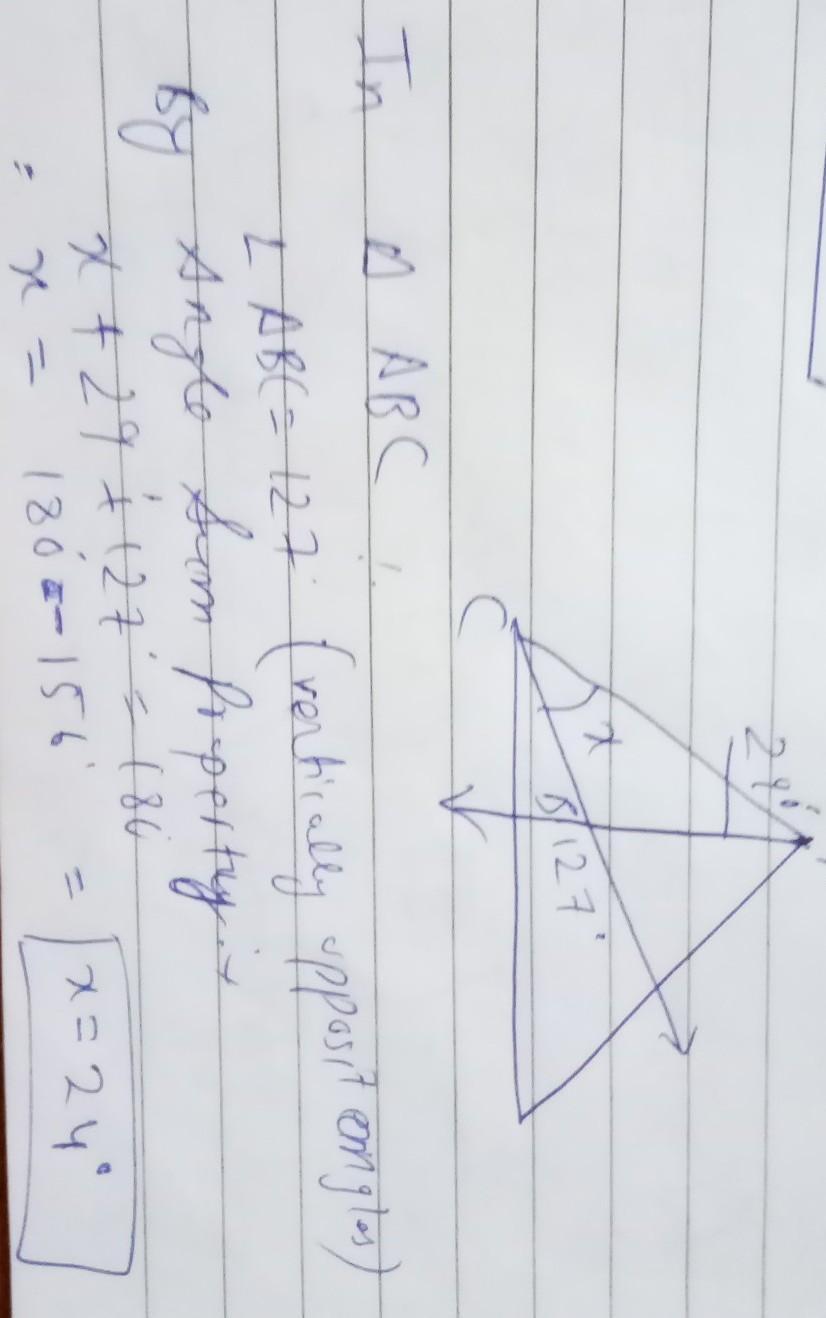 29°
x
C
B
127°
In Δ ABC
∠ ABC = 127° (vertically opposit angles)
By Angle Sum Property :→
x + 29 + 127° = 180
= x = 180 - 156 = x = 24°